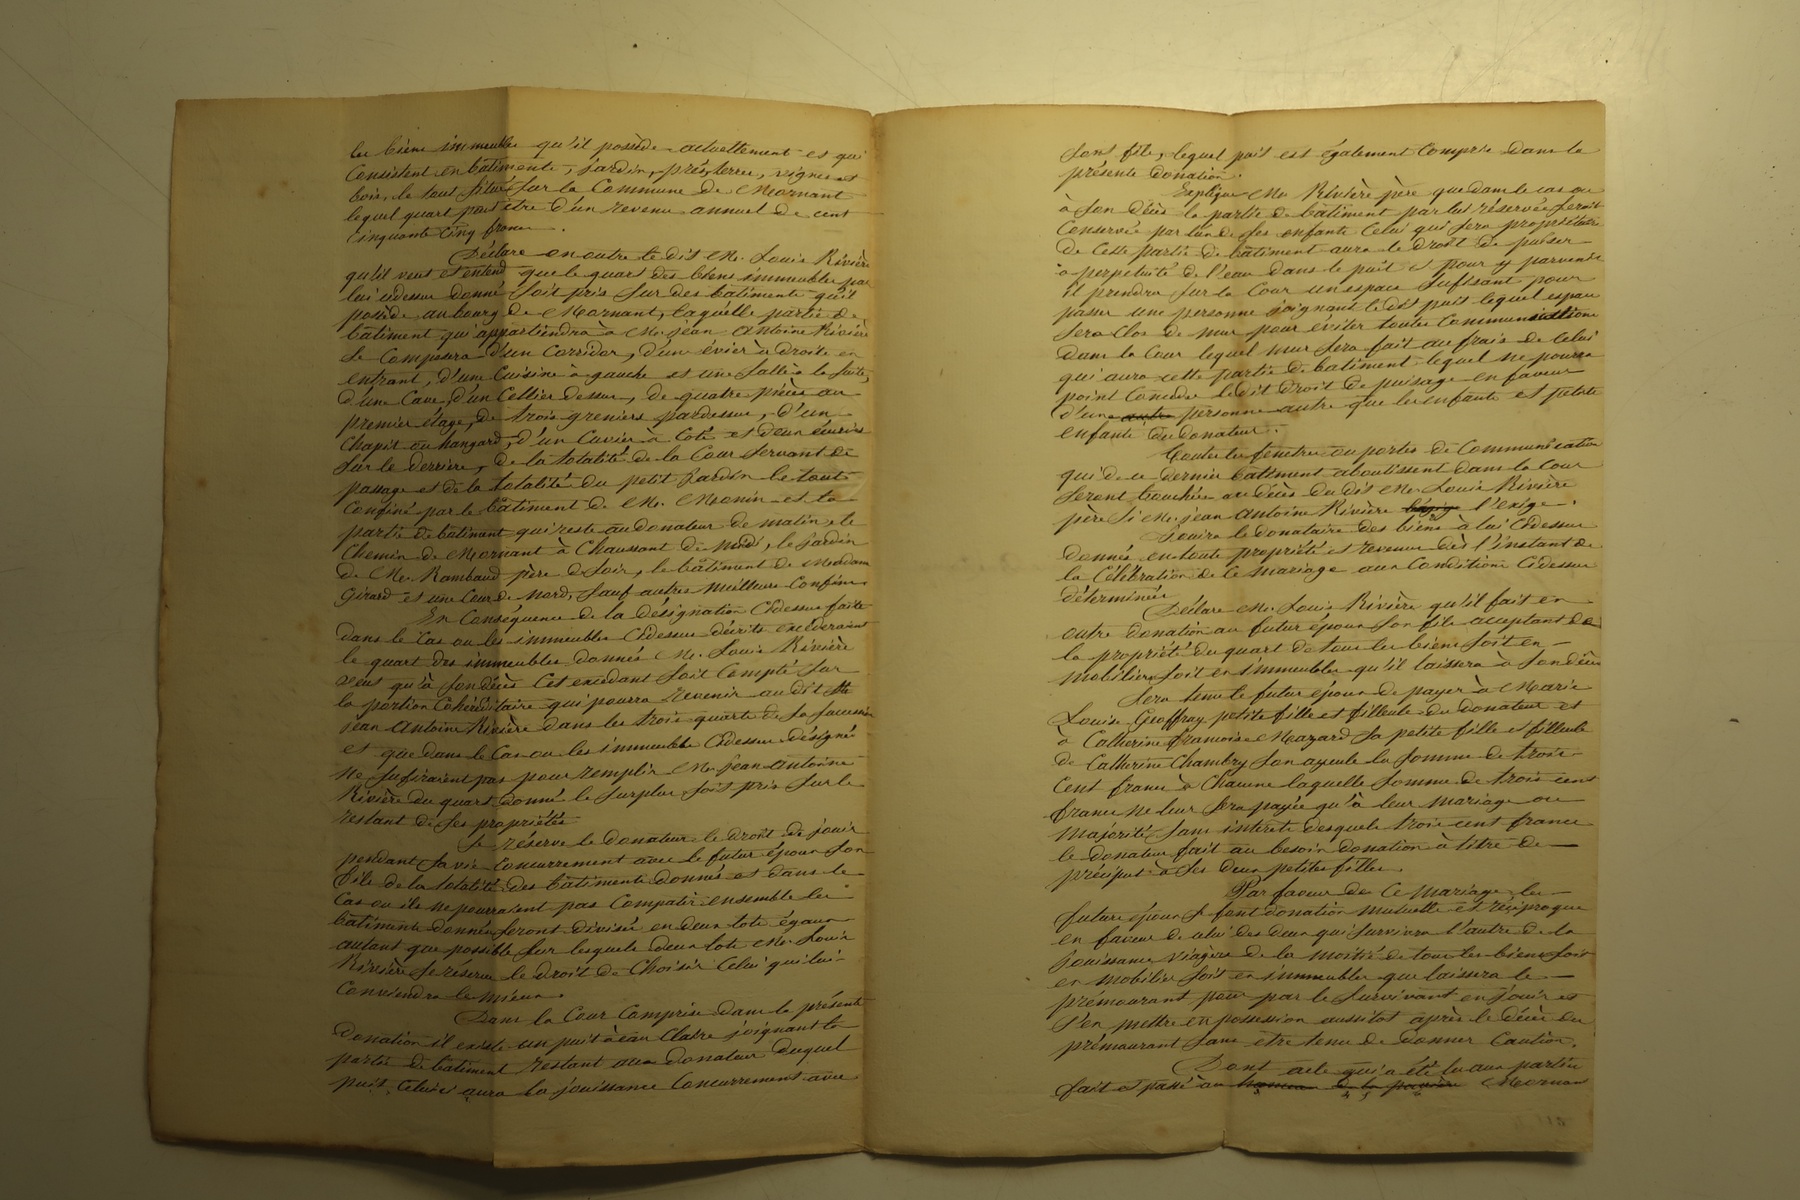 les biens immeubles qu'il possède actuellement et qui
Consistent en bâtiments, jardin, prés, terres, vignes et
bois, le tout situé sur la Commune de Mornant
lequel quart peut être d'un revenu annuel de cent
Cinquante Cinq francs.
Déclare en outre le dit Mr. Louis Rivière
qu'il veut et entend que le quart des biens immeubles par
lui cidessus donné soit pris sur des bâtiments qu'il
possède au bourg de Mornant, laquelle partie de
bâtiment qui appartiendra à Mr. jean Antoine Rivière
Se Composera d'un Corridor, d'une évier à droite en
entrant, d'une Cuisine à gauche et une Salle à la suite,
d'une Cave, d'un Cellier dessus, de quatre pièces au
premier étage, de trois greniers pardessus, d'un
Chapit ou hangard, d'un Cuvier à Coté et d'une écurie
Sur le derrière, de la totalité de la Cour servant de
passage et de la totalité du petit Jardin le tout
Confiné par le bâtiment de Mr. Monin et la
partie de bâtiment qui reste au donateur de matin, le
Chemin de Mornant à Chaussant de midi, le jardin
de Mr. Rambaud père de Soir, le bâtiment de Madame
Girard et une Cour de Nord, Sauf autres meilleurs Confins.
En Conséquence de la désignation Cidessus faite
dans le Cas ou les immeubles Cidessus décrits excéderaient
le quart des immeubles donnés Mr. Louis Rivière
veut qu'à son décès Cet excédant soit Compté sur
la portion Cohéréditaire qui pourra revenir au dit Mr
jean Antoine Rivière dans les trois quarts de Sa Succession
et que dans le Cas ou les immeubles Cidessus désignés
ne Suffiraient pas pour remplir Mr. jean Antoine
Rivière du quart donné le Surplus soit pris Sur le
restant de Ses propriétés
Se réserve le donateur le droit de jouir
pendant Sa vie Concurrement avec le futur époux Son
fils de la totalité des bâtiments donnés et dans le
Cas ou ils ne pourraient pas Compatir ensemble les
bâtiments donnés seront divisés en deux lots égaux
autant que possible Sur lesquels deux lots Mr. Louis
Rivière Se réserve le droit de Choisir Celui qui lui
Conviendra le mieux.
Dans la Cour Comprise dans la présente
donation il existe un puit à eau Claire joignant la
partie de bâtiment restant au donateur duquel
puit, Celui ci aura la jouissance Concurrement avec
Sont fils, lequel puit est également Compris dans la
présente donation.
Explique Mr. Rivière père que dans le cas ou
à Son décès la partie de bâtiment par lui réservée serait
Conservée par l'un de Ses enfants Celui qui Sera propriétaire
de Cette partie de bâtiment aura le droit de puiser
à perpétuité de l'eau dans le puit et pour y parvenir
il prendra Sur la Cour un espace Suffisant pour
passer une personne joignant le dit puit lequel espace
Sera Clos de mur pour éviter toutes Communications
dans la Cour lequel mur Sera fait au frais de Celui
qui aura cette partie de bâtiment lequel ne pourra
point Concéder le dit droit de puisage en faveur
d'une autre personne autre que les enfants et petits
enfants du donateur.
Toutes les fenêtres ou portes de Communication
qui de ce dernier bâtiment aboutissent dans la Cour
Seront bouchées au décès du dit Mr. Louis Rivière
père Si Mr. jean Antoine Rivière l'exige.
Jouira le donataire des biens à lui Cidessus
donnés en toute propriété et revenus dès l'instant de
la Célébration de Ce mariage aux Conditions Cidessus
déterminées
Déclare Mr. Louis Rivière qu'il fait en
outre donation au futur époux Son fils acceptant de
la propriété du quart de tous les biens Soit en
mobiliers Soit en immeubles qu'il laissera à Son décès
Sera tenu le futur époux de payer à Marie
Louise Geoffray petite fille et filleule du donateur et
à Catherine françoise Mazard Sa petite fille et filleule
de Catherine Chambry Son ayeule la Somme de trois
Cent francs à Chacune laquelle Somme de trois cent
francs ne leur Sera payée qu'à leur mariage ou
Majorité Sans intérêts desquels trois cent francs
le donateur fait au besoin donation à titre de
préciput à Ses deux petites filles.
Par faveur de Ce Mariage, les
futurs époux Se font donation mutuelle et réciproque
en faveur de celui des deux qui Survivra l'autre de la
Jouissance viagère de la moitié de tous les biens Soit
en mobilier Soit en immeubles que laissera le
prémourant pour par le Survivant en Jouir et
S'en mettre en possession aussitot après le décès du
prémourant Sans être tenu de donner Caution.
Dont acte qui a été lu aux parties
fait et passé au hameau de la Mornant